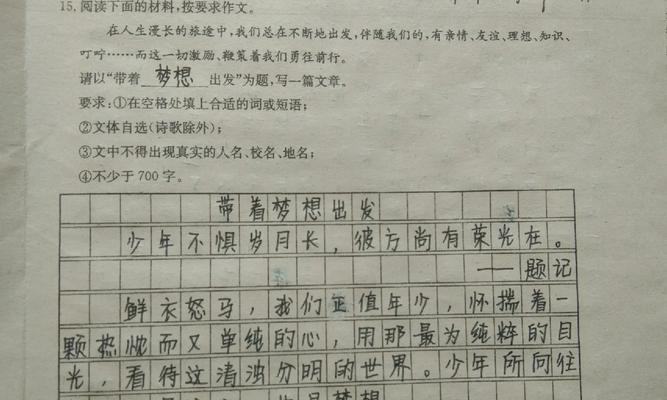 15. 阅读下面的材料,按要求作文。
在人生漫长的旅途中,我们总在不断地出发,伴随我们的,有亲情、友谊、理想、知识、
叮咛……而这一切激励、鞭策着我们勇往前行。
请以“带着 梦想 出发”为题,写一篇文章。
要求:①在空格处填上合适的词或短语;
②文体自选(诗歌除外);
③文中不得出现真实的人名、校名、地名;
④不少于 700 字。
带着梦想出发
少年不惧岁月长，彼方尚有荣光在。
——题记
鲜衣怒马，我们正值年少，怀揣着一
颗热忱而又单纯的心，用那最为纯粹的目
光，看待这清浊分明的世界。少年所向往
梦想